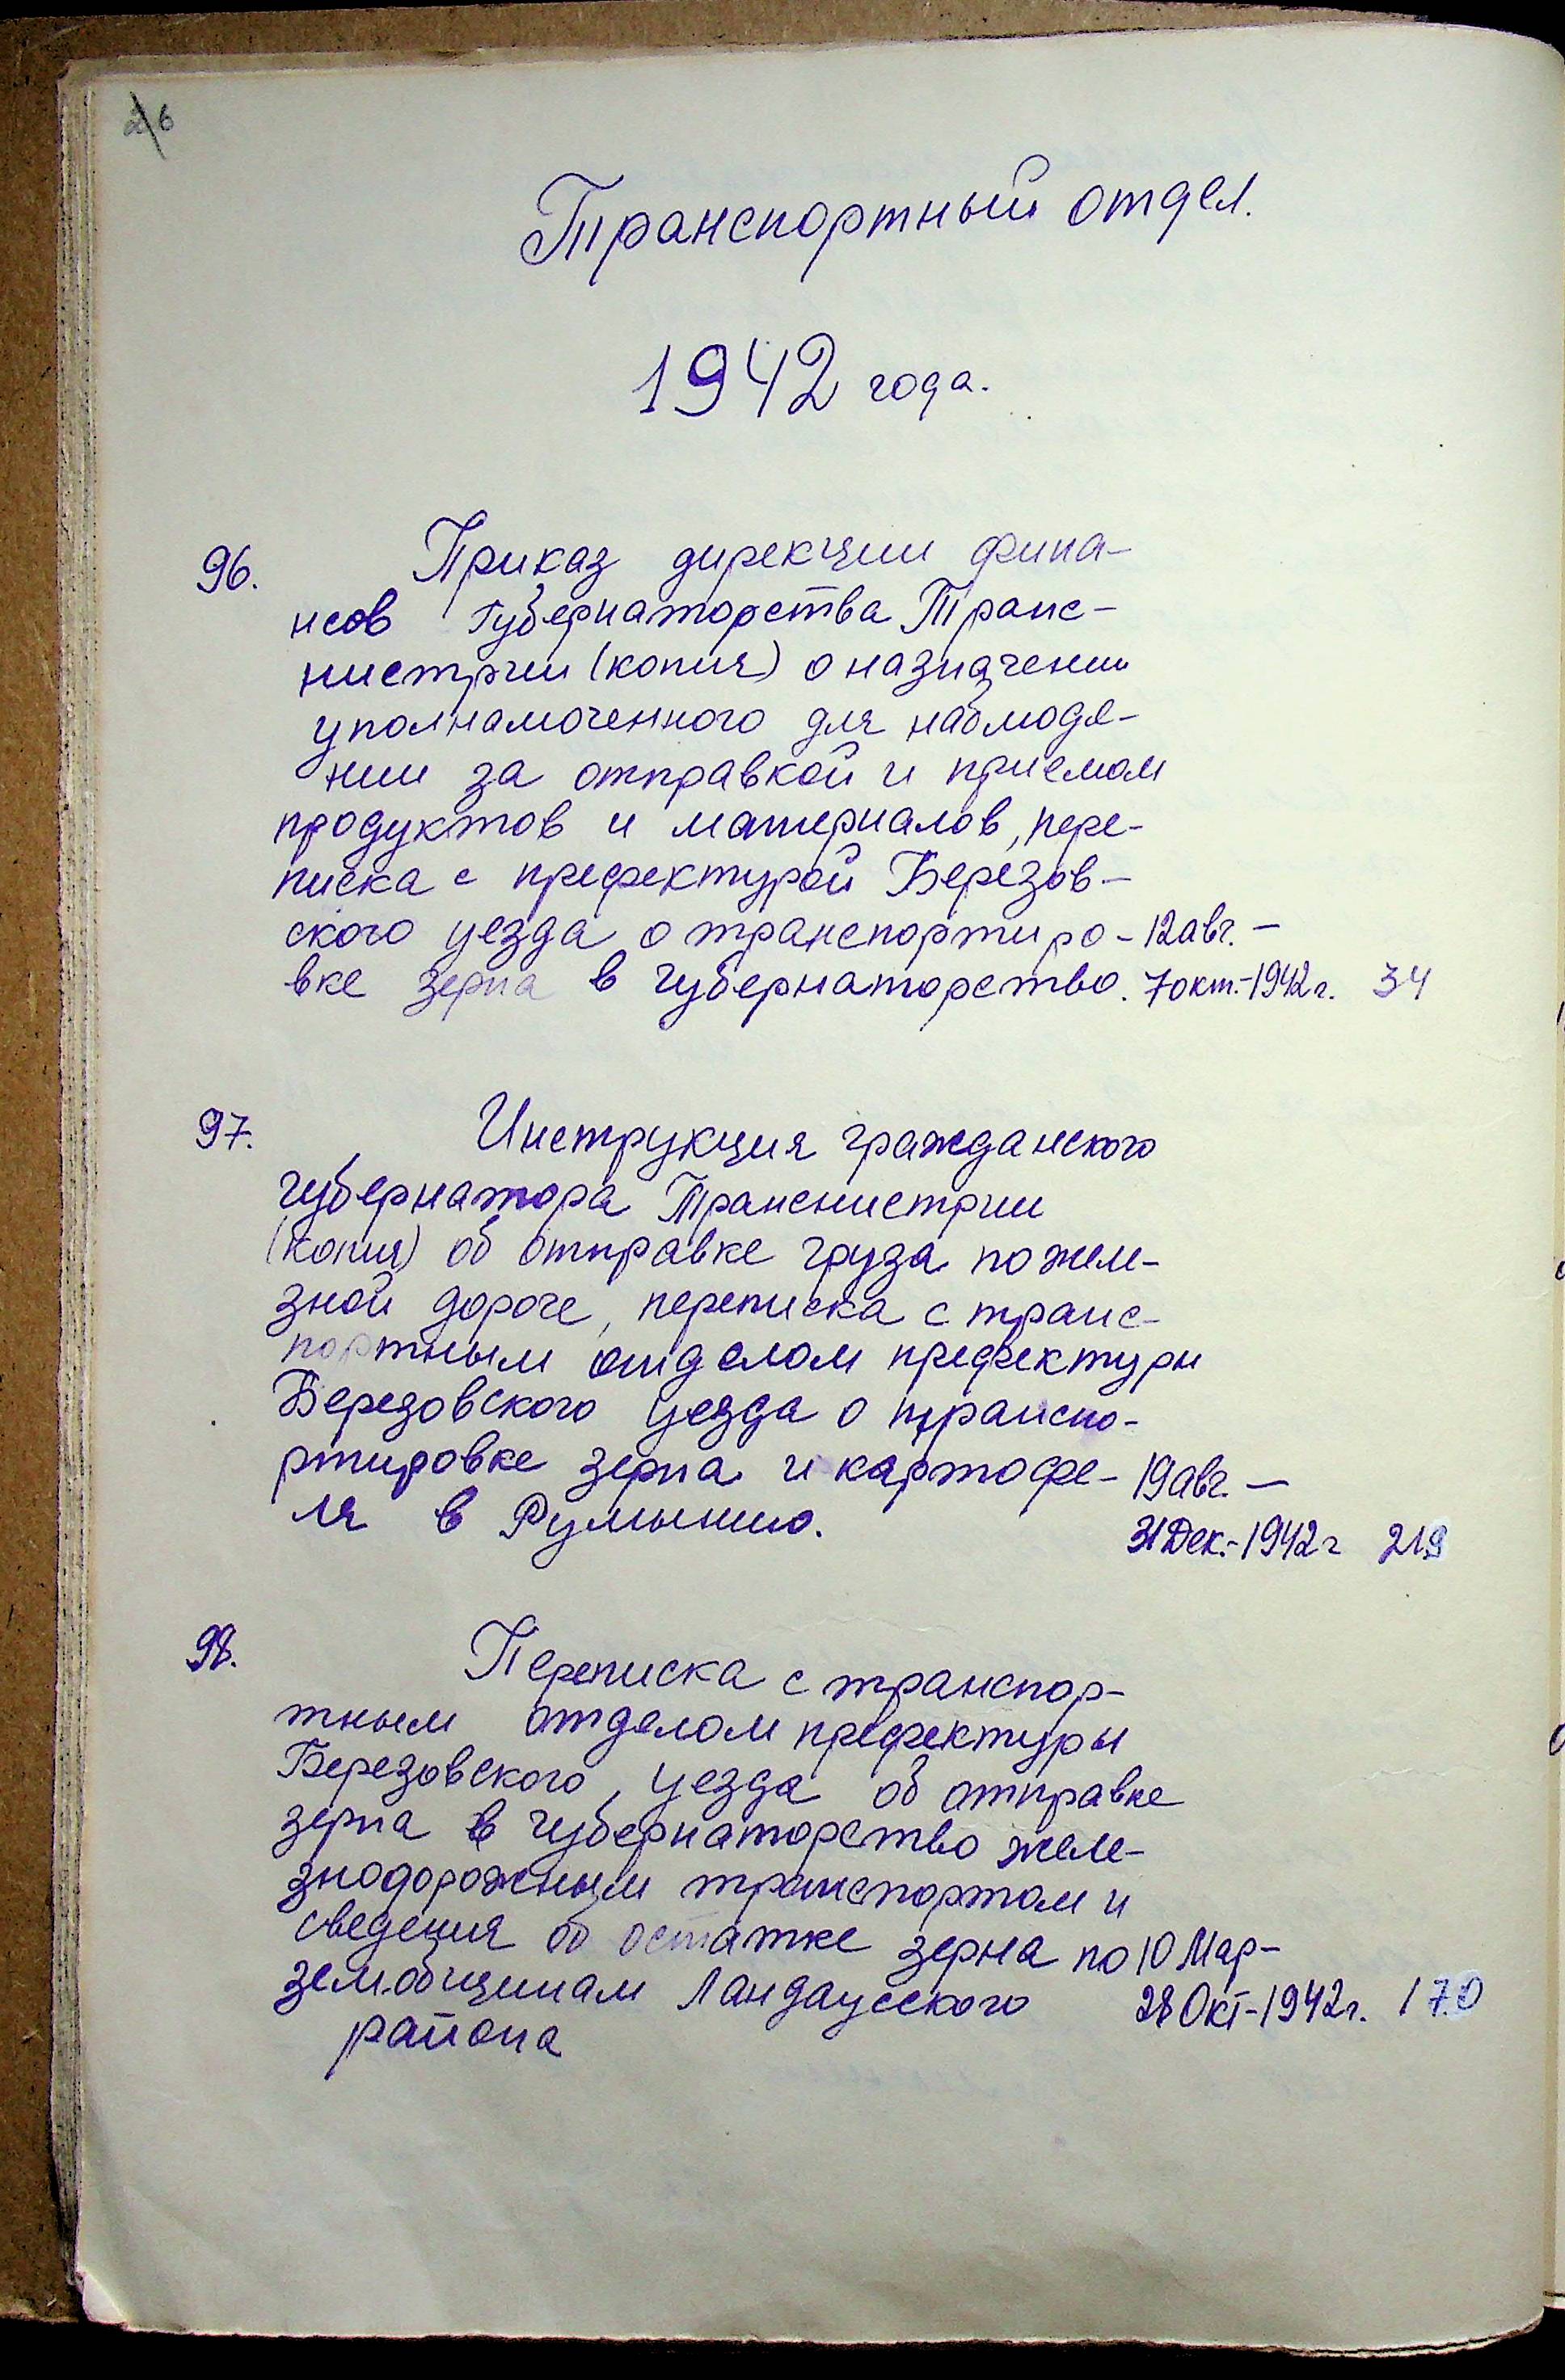 26
Транспортный отдел.
1942 года.
96. Приказ дирекции фина-
нсов Губернаторства Транс-
нистрии (копия) о назначении
уполнамоченного для наблюде-
нии за отправкой и приемом
продуктов и материалов, пере-
писка с префектурой Березов-
ского уезда о транспортиро- 12 авг. —
вке зерна в губернаторство. 7 окт.-1942 г. 34
97. Инструкция гражданского
губернатора Транснистрии
(копия) об отправке груза по желе-
зной дороге, переписка с транс-
портным отделом префектуры
Березовского уезда о транспо-
ртировке зерна и картофе- 19 авг. —
ля в Румынию. 31 Дек.-1942 г 219
98. Переписка с транспор-
тным отделом префектуры
Березовского уезда об отправке
зерна в губернаторство желе-
знодорожным транспортом и
сведения об остатке зерна по 10 Мар-
зем.общинам Ландаусского 28 Окт-1942 г. 170
района